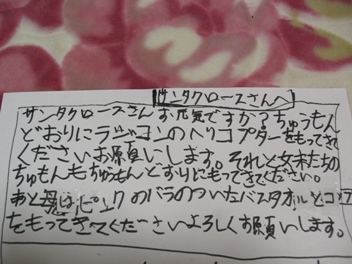 サンタクロースさんへ
サンタクロースさんお元気ですか?ちゅうもん
どおりにラジコンのヘリコプターをもってき
てくださいお願いします。それと女未たちの
ちゅもんもちゅうもんどうりにもってきてください。
あと母はピンクのバラのついたバスタオルとコップ
をもってきてくださいよろしくお願いします。